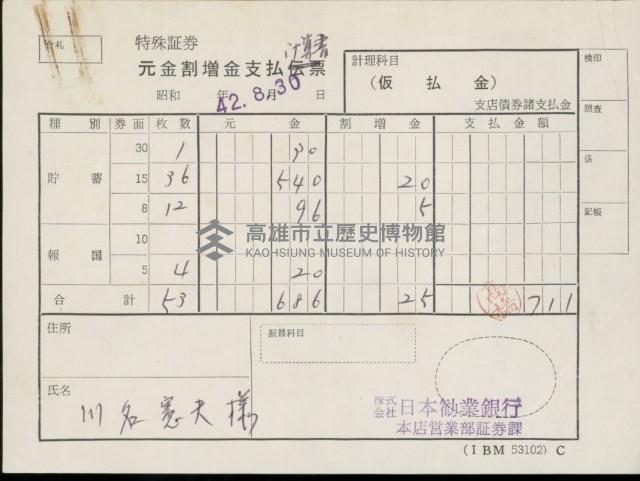 合札
特殊証券
計算書
元金割増金支払伝票
昭和 年 月 日
42.8.30
計理科目
(仮払金)
支店債券諸支払金
検印
照査
係
記帳
種別 券面 枚数 元金 割増金 支払金額
30 1 30
貯蓄 15 36 540 20
8 12 96 5
10
報国
5 4 20
合計 53 686 25 711
高雄市立歷史博物館
KAOHSIUNG MUSEUM OF HISTORY
住所
振替科目
氏名
川名憲夫様
株式会社日本勧業銀行
本店営業部証券課
(IBM 53102) C